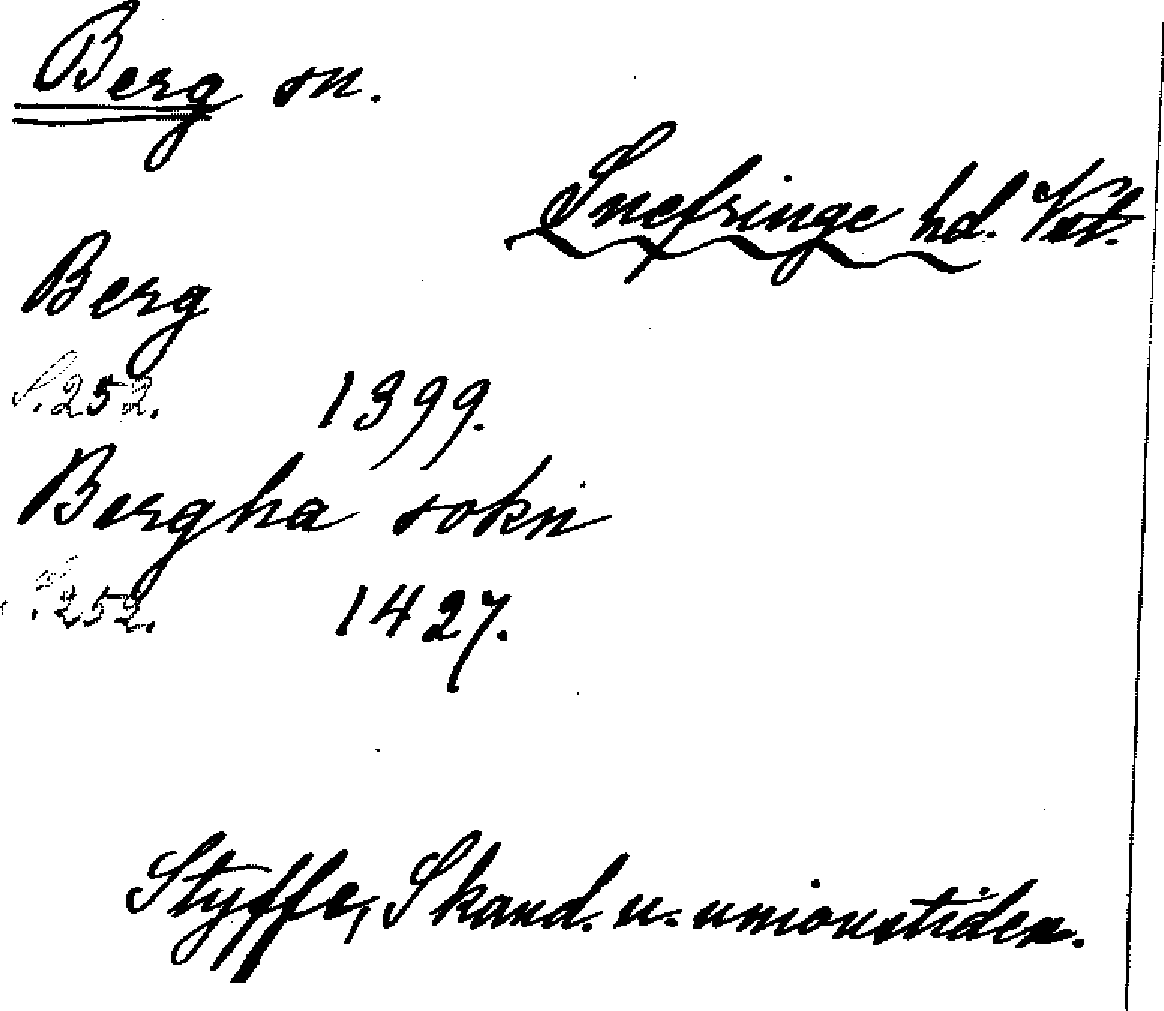 Berg sn.
Snefringe hd. Vstl.
Berg
S. 252. 1399.
Bergha sokn
S. 252. 1427.
Styffe, Skand. u. unionstiden.